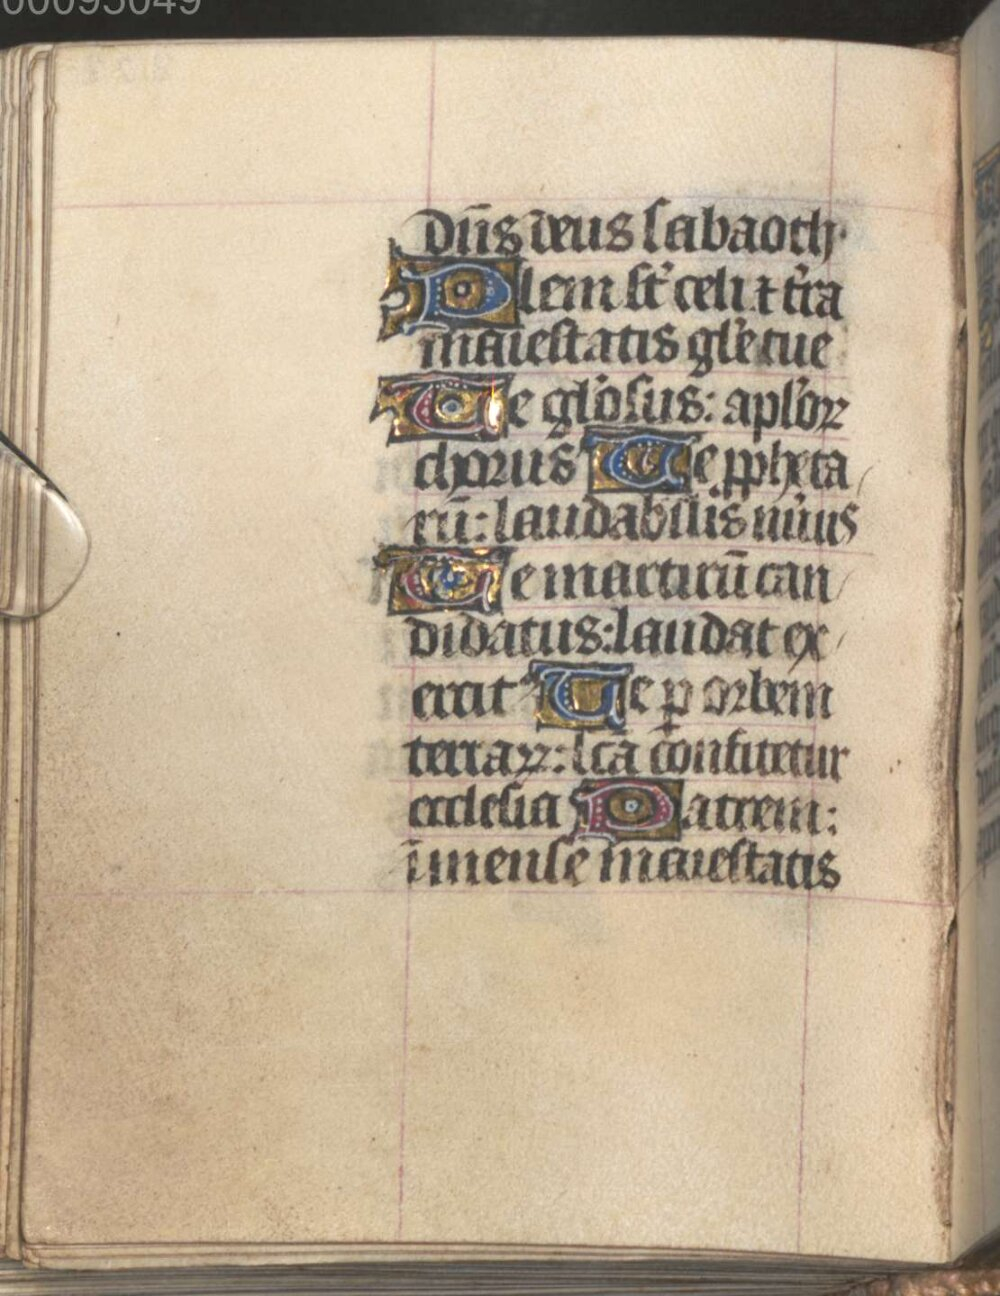 00095049
Dn̄s deus sabaoth
Plem st̄ celi ⁊ t̓ra
maiestatis gl̓e tue
Te gl̓osus: apl̓oꝝ
chorus Te ꝓpheta
rū: laudabilis nūus
Te martirū can
didatus: laudat ex
ercit᷒ Te ꝑ orbem
terraꝝ: scā confitetur
ecclesia Patrem:
īmense maiestatis